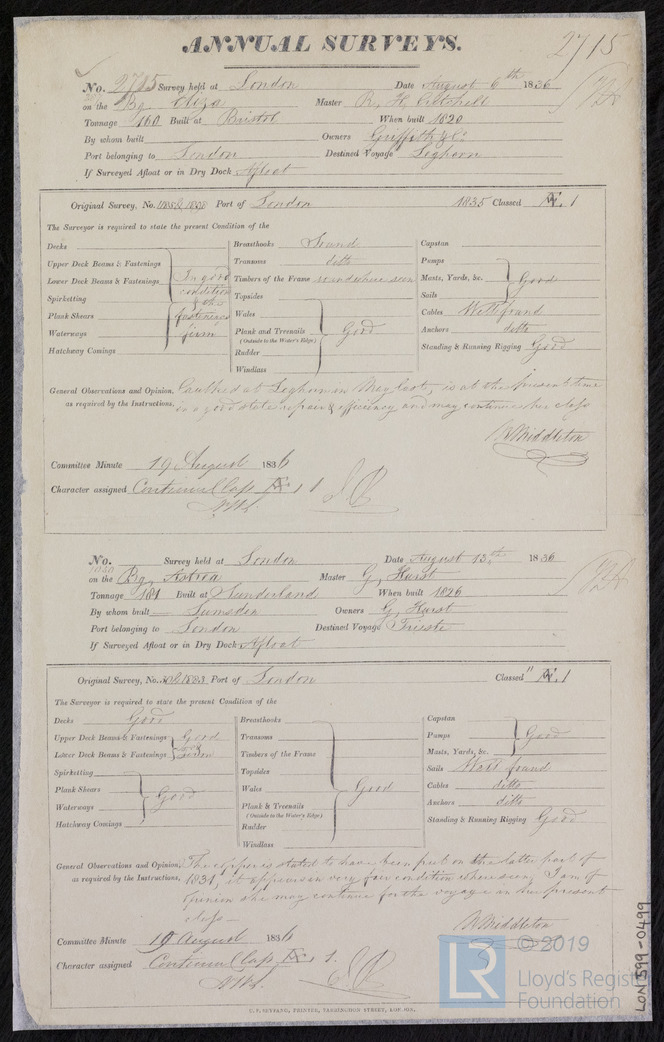 ANNUAL SURVEYS.
2715
No. 2715 Survey held at London Date August 6th 1836
on the Bg Eliza Master R. H.
Tonnage 160 Built at Bristol When built 1820
By whom built Owners Griffith & Co
Port belonging to London Destined Voyage Leghorn
If Surveyed Afloat or in Dry Dock Afloat
Original Survey, No. Port of London 1835 Classed Æ 1
The Surveyor is required to state the present Condition of the
Decks
Upper Deck Beams & Fastenings
Lower Deck Beams & Fastenings
Spirketting
Plank Shears
Waterways
Hatchway Comings
In good
condition
& the
fastenings
firm
Breasthooks Sound
Transoms ditto
Timbers of the Frame sound where seen
Topsides
Wales
Plank and Treenails
(Outside to the Water's Edge)
Rudder
Windlass
Good
Capstan
Pumps
Masts, Yards, &c.
Sails
Good
Cables Well found
Anchors ditto
Standing & Running Rigging Good
General Observations and Opinion, Caulked at Leghorn in May last, is at the present time
as required by the Instructions. in a good state repair & efficiency and may continue her class
W Middleton
Committee Minute 19 August 1836
Character assigned Continued Class Æ 1
No. Survey held at London Date August 13th 1836
on the Bg Astrea Master G. Hurst
Tonnage 181 Built at Sunderland When built 1826
By whom built Lumsden Owners G. Hurst
Port belonging to London Destined Voyage Trieste
If Surveyed Afloat or in Dry Dock Afloat
Original Survey, No. Port of London Classed Æ 1
The Surveyor is required to state the present Condition of the
Decks Good
Upper Deck Beams & Fastenings Good
Lower Deck Beams & Fastenings
Spirketting
Plank Shears
Waterways
Hatchway Comings
Good
Breasthooks
Transoms
Timbers of the Frame
Topsides
Wales
Plank & Treenails
(Outside to the Water's Edge)
Rudder
Windlass
Good
Capstan
Pumps
Masts, Yards, &c.
Good
Sails Well found
Cables ditto
Anchors ditto
Standing & Running Rigging Good
General Observations and Opinion, The copper is stated to have been put on the latter part of
as required by the Instructions, 1834, it appears in very fair condition where seen, I am of
opinion she may continue for the voyage in her present
class
W Middleton
Committee Minute 19 August 1836
Character assigned Continued Class Æ 1.
C. F. SEYFANG, PRINTER, FARRINGDON STREET, LONDON.
LR © 2019
Lloyd's Register
Foundation
LON 599-0499